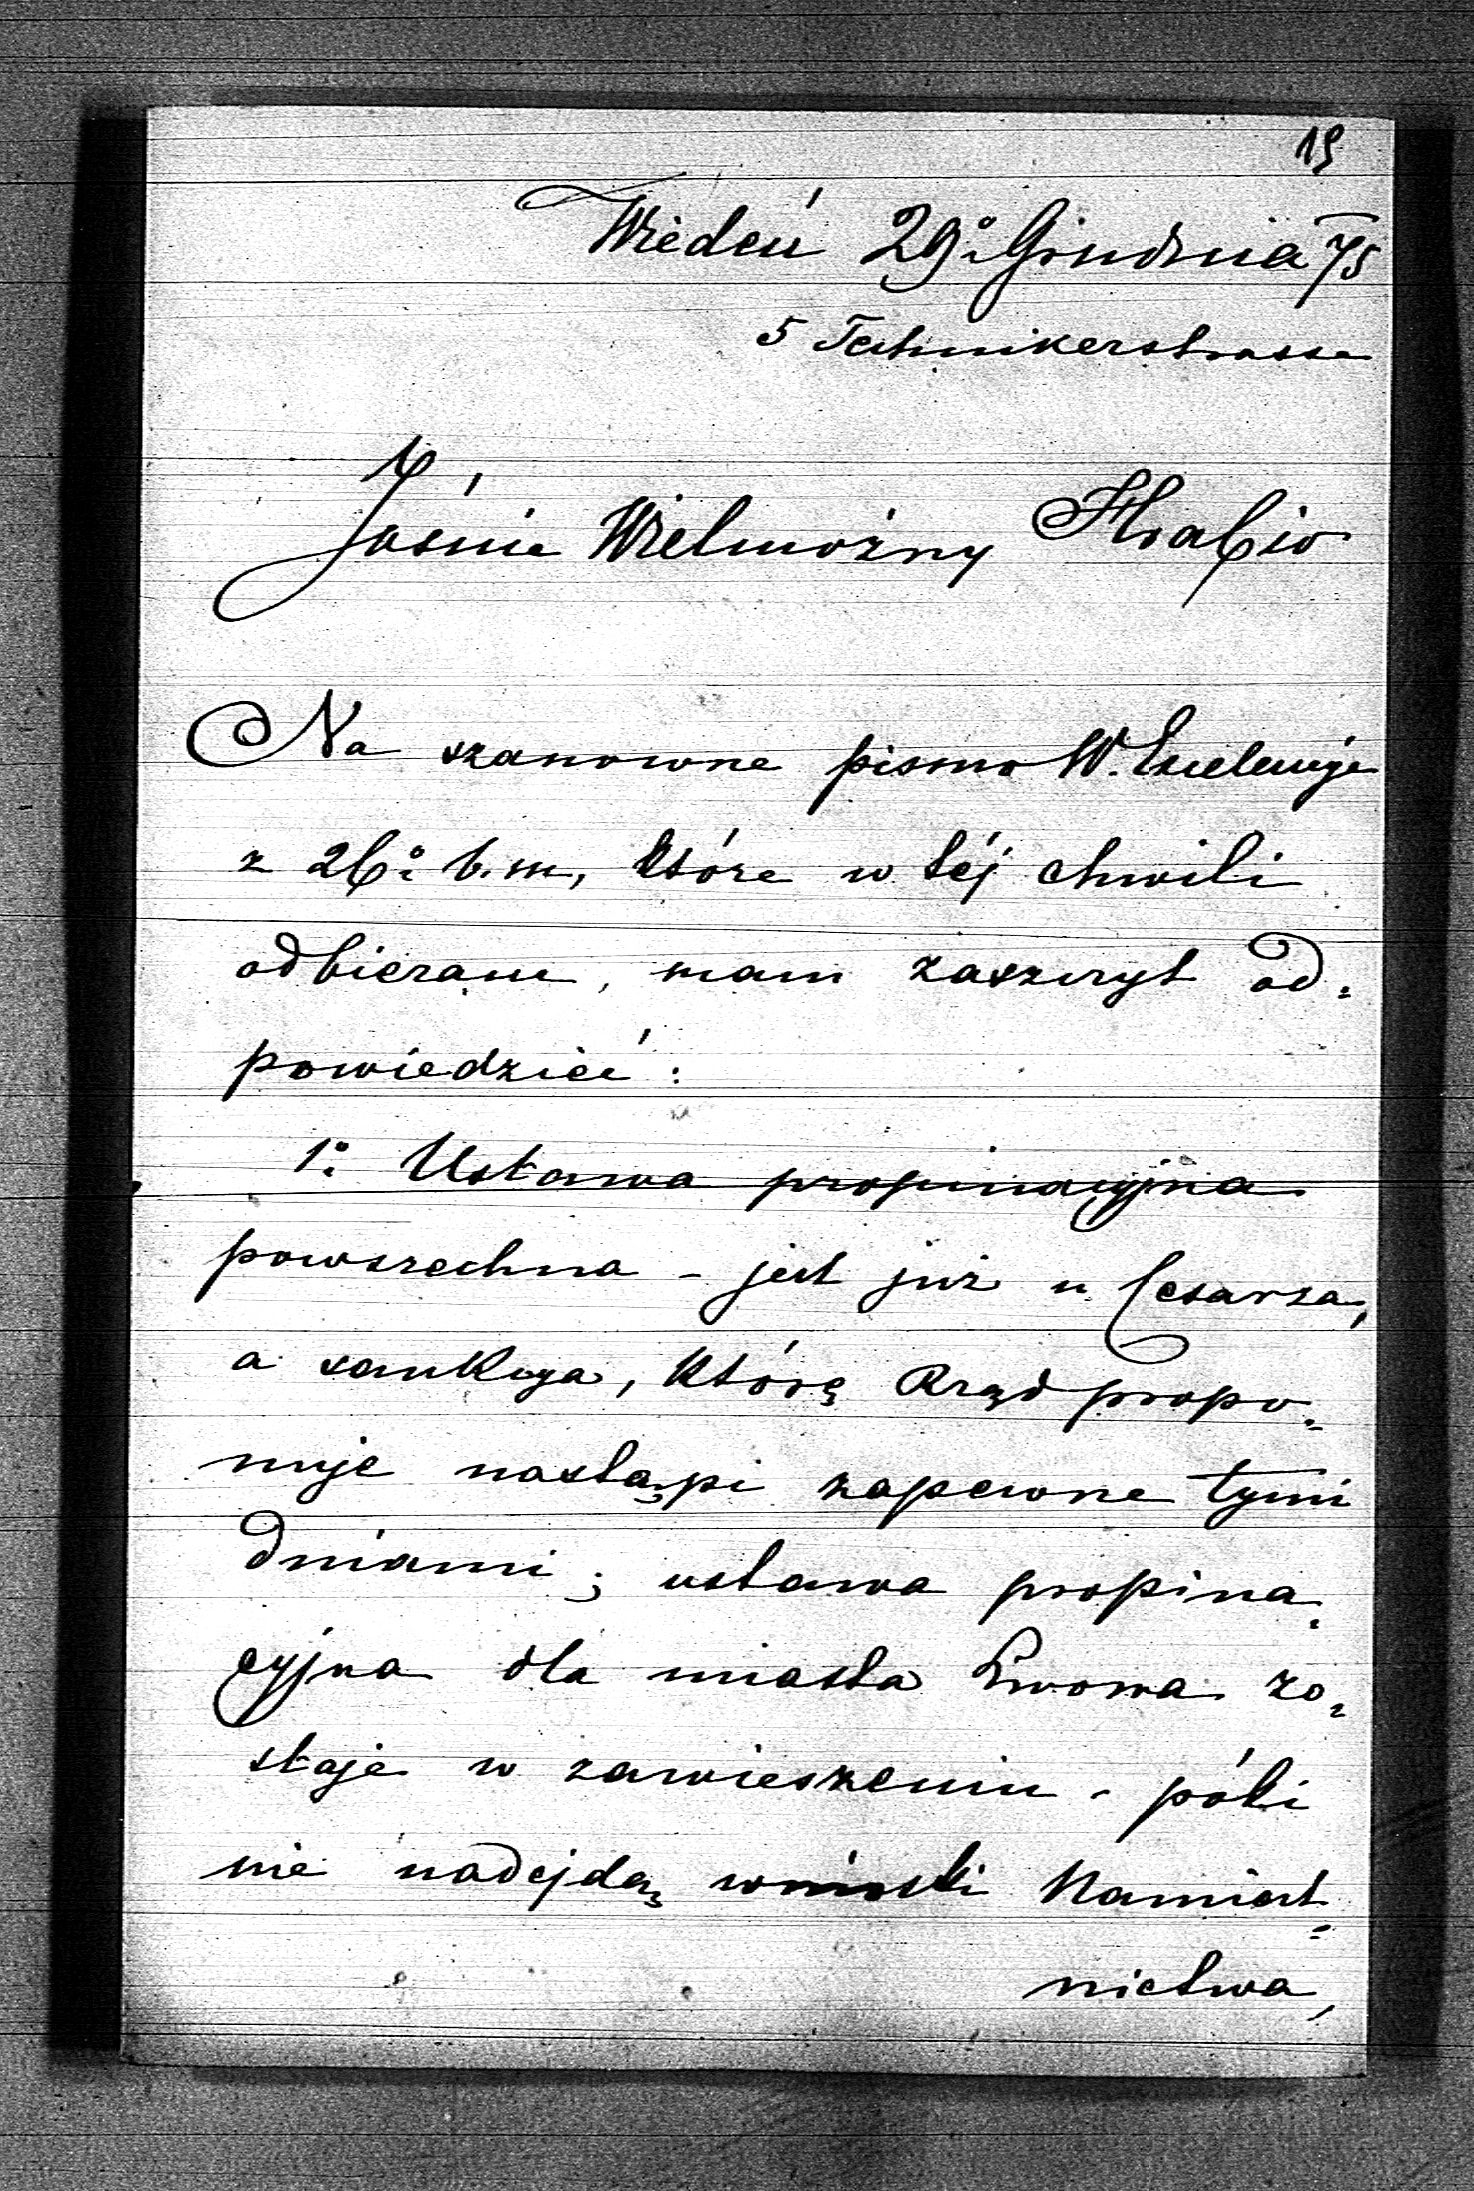 19
Wiedeń 29° Grudnia 75
5 Technikerstrasse
Jaśnie Wielmożny Hrabio
Na szanowne pismo W. Excelencyi
z 26° b.m, które w téj chwili
odbieram, mam zaszczyt od=
powiedzieć:
1° Ustawa propinacyjna
powszechna - jest już u Cesarza,
a sankcya, którą Rząd propo=
nuje nastąpi zapewne tymi
dniami; ustawa propina=
cyjna dla miasta Lwowa zo=
staje w zawieszeniu - póki
nie nadejdą wnioski Namiest=
nictwa,